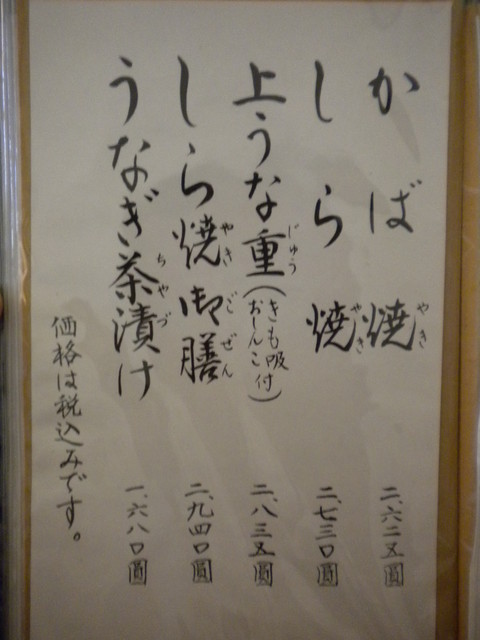 かば焼 二、六二五圓
やき
しら焼 二、七三〇圓
やき
上うな重(きも吸おしんこ付) 二、八三五圓
じゅう
しら焼御膳 二、九四〇圓
やきごぜん
うなぎ茶漬け 一、六八〇圓
ちゃづ
価格は税込みです。